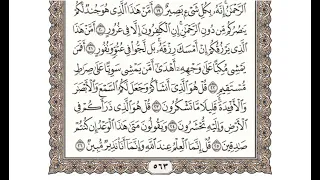 ٱلرَّحۡمَٰنُۚ إِنَّهُۥ بِكُلِّ شَيۡءِۭ بَصِيرٌ ١٩ أَمَّنۡ هَٰذَا ٱلَّذِي هُوَ جُندٞ لَّكُمۡ
يَنصُرُكُم مِّن دُونِ ٱلرَّحۡمَٰنِۚ إِنِ ٱلۡكَٰفِرُونَ إِلَّا فِي غُرُورٍ ٢٠ أَمَّنۡ هَٰذَا
ٱلَّذِي يَرۡزُقُكُمۡ إِنۡ أَمۡسَكَ رِزۡقَهُۥۚ بَل لَّجُّواْ فِي عُتُوّٖ وَنُفُورٍ ٢١ أَفَمَن
يَمۡشِي مُكِبًّا عَلَىٰ وَجۡهِهِۦٓ أَهۡدَىٰٓ أَمَّن يَمۡشِي سَوِيًّا عَلَىٰ صِرَٰطٖ
مُّسۡتَقِيمٖ ٢٢ قُلۡ هُوَ ٱلَّذِيٓ أَنشَأَكُمۡ وَجَعَلَ لَكُمُ ٱلسَّمۡعَ وَٱلۡأَبۡصَٰرَ
وَٱلۡأَفۡـِٔدَةَۚ قَلِيلٗا مَّا تَشۡكُرُونَ ٢٣ قُلۡ هُوَ ٱلَّذِي ذَرَأَكُمۡ فِي
ٱلۡأَرۡضِ وَإِلَيۡهِ تُحۡشَرُونَ ٢٤ وَيَقُولُونَ مَتَىٰ هَٰذَا ٱلۡوَعۡدُ إِن كُنتُمۡ
صَٰدِقِينَ ٢٥ قُلۡ إِنَّمَا ٱلۡعِلۡمُ عِندَ ٱللَّهِ وَإِنَّمَآ أَنَا۠ نَذِيرٞ مُّبِينٞ ٢٦
٥٦٣